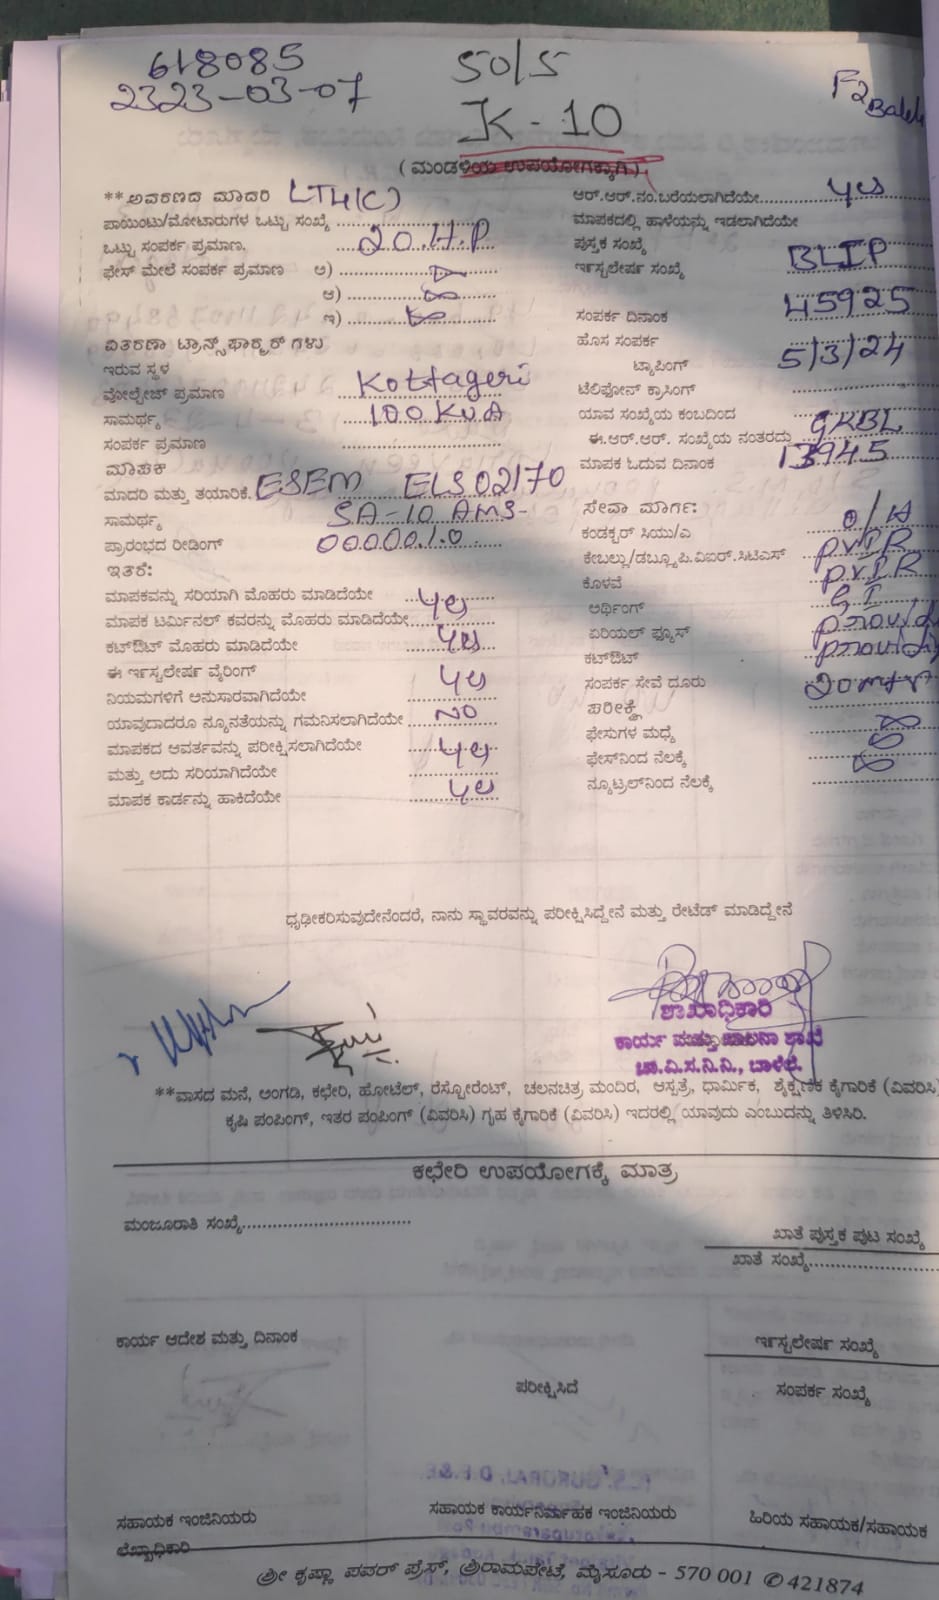 618085
2323-03-07
50/5
K-10
F2
(ಮಂಡಳಿಯ ಉಪಯೋಗಕ್ಕಾಗಿ)
**ಆವರಣದ ಮಾದರಿ LT4(C)
ಪಾಯಿಂಟು/ಮೋಟಾರುಗಳ ಒಟ್ಟು ಸಂಖ್ಯೆ
ಒಟ್ಟು ಸಂಪರ್ಕ ಪ್ರಮಾಣ. 20.H.P
ಫೇಸ್ ಮೇಲೆ ಸಂಪರ್ಕ ಪ್ರಮಾಣ ಅ)
ಆ)
ಇ)
ವಿತರಣಾ ಟ್ರಾನ್ಸ್‌ಫಾರ್‍ಮರ್ ಗಳು
ಇರುವ ಸ್ಥಳ
ವೋಲ್ಟೇಜ್ ಪ್ರಮಾಣ Kottageri
ಸಾಮರ್ಥ್ಯ 100 KVA
ಸಂಪರ್ಕ ಪ್ರಮಾಣ
ಮಾಪಕ
ಮಾದರಿ ಮತ್ತು ತಯಾರಿಕೆ. ESEM ELS02170
ಸಾಮರ್ಥ್ಯ 5A-10 AMS-
ಪ್ರಾರಂಭದ ರೀಡಿಂಗ್ 00000.1.0
ಇತರೆ:
ಮಾಪಕವನ್ನು ಸರಿಯಾಗಿ ಮೊಹರು ಮಾಡಿದೆಯೇ yes
ಮಾಪಕ ಟರ್ಮಿನಲ್ ಕವರನ್ನು ಮೊಹರು ಮಾಡಿದೆಯೇ
ಕಟ್‌ಔಟ್ ಮೊಹರು ಮಾಡಿದೆಯೇ yes
ಈ ಇನ್ಸ್ಟಲೇಷನ್ ವೈರಿಂಗ್
ನಿಯಮಗಳಿಗೆ ಅನುಸಾರವಾಗಿದೆಯೇ yes
ಯಾವುದಾದರೂ ನ್ಯೂನತೆಯನ್ನು ಗಮನಿಸಲಾಗಿದೆಯೇ NO
ಮಾಪಕದ ಆವರ್ತವನ್ನು ಪರೀಕ್ಷಿಸಲಾಗಿದೆಯೇ yes
ಮತ್ತು ಅದು ಸರಿಯಾಗಿದೆಯೇ
ಮಾಪಕ ಕಾರ್ಡನ್ನು ಹಾಕಿದೆಯೇ yes
ಆರ್.ಆರ್.ನಂ.ಬರೆಯಲಾಗಿದೆಯೇ yes
ಮಾಪಕದಲ್ಲಿ ಹಾಳೆಯನ್ನು ಇಡಲಾಗಿದೆಯೇ
ಪುಸ್ತಕ ಸಂಖ್ಯೆ
ಇನ್ಸ್ಟಲೇಷನ್ ಸಂಖ್ಯೆ BLIP
45925
ಸಂಪರ್ಕ ದಿನಾಂಕ
ಹೊಸ ಸಂಪರ್ಕ 5/3/24
ಟ್ಯಾಪಿಂಗ್
ಟೆಲಿಫೋನ್ ಕ್ರಾಸಿಂಗ್
ಯಾವ ಸಂಖ್ಯೆಯ ಕಂಬದಿಂದ GKBL
ಈ.ಆರ್.ಆರ್. ಸಂಖ್ಯೆಯ ನಂತರದ್ದು 13945
ಮಾಪಕ ಓದುವ ದಿನಾಂಕ
ಸೇವಾ ಮಾರ್ಗ:
ಕಂಡಕ್ಟರ್ ಸಿಯು/ಎ O/H
ಕೇಬಲ್ಲು/ಡಬ್ಲ್ಯೂ.ಪಿ.ಐಆರ್.ಸಿಟಿಎಸ್ PVIR
ಕೊಳವೆ PVIR
ಅರ್ಥಿಂಗ್ GI
ಏರಿಯಲ್ ಫ್ಯೂಸ್
ಕಟ್‌ಔಟ್
ಸಂಪರ್ಕ ಸೇವೆ ದೂರು 20mtr
ಪರೀಕ್ಷೆ
ಫೇಸುಗಳ ಮಧ್ಯೆ
ಫೇಸ್‌ನಿಂದ ನೆಲಕ್ಕೆ
ನ್ಯೂಟ್ರಲ್‌ನಿಂದ ನೆಲಕ್ಕೆ
ಧೃಢೀಕರಿಸುವುದೇನೆಂದರೆ, ನಾನು ಸ್ಥಾವರವನ್ನು ಪರೀಕ್ಷಿಸಿದ್ದೇನೆ ಮತ್ತು ರೇಟೆಡ್ ಮಾಡಿದ್ದೇನೆ
ಶಾಖಾಧಿಕಾರಿ
ಕಾರ್ಯ ಮತ್ತು ಪಾಲನಾ ಶಾಖೆ
ಚಾ.ವಿ.ಸ.ನಿ.ನಿ., ಬಾಳೆಲೆ.
**ವಾಸದ ಮನೆ, ಅಂಗಡಿ, ಕಛೇರಿ, ಹೋಟೆಲ್, ರೆಸ್ಟೋರೆಂಟ್, ಚಲನಚಿತ್ರ ಮಂದಿರ, ಆಸ್ಪತ್ರೆ, ಧಾರ್ಮಿಕ, ಶೈಕ್ಷಣಿಕ ಕೈಗಾರಿಕೆ (ವಿವರಿಸಿ)
ಕೃಷಿ ಪಂಪಿಂಗ್, ಇತರ ಪಂಪಿಂಗ್ (ವಿವರಿಸಿ) ಗೃಹ ಕೈಗಾರಿಕೆ (ವಿವರಿಸಿ) ಇದರಲ್ಲಿ ಯಾವುದು ಎಂಬುದನ್ನು ತಿಳಿಸಿರಿ.
ಕಛೇರಿ ಉಪಯೋಗಕ್ಕೆ ಮಾತ್ರ
ಮಂಜೂರಾತಿ ಸಂಖ್ಯೆ
ಖಾತೆ ಪುಸ್ತಕ ಪುಟ ಸಂಖ್ಯೆ
ಖಾತೆ ಸಂಖ್ಯೆ
ಕಾರ್ಯ ಆದೇಶ ಮತ್ತು ದಿನಾಂಕ
ಇನ್ಸ್ಟಲೇಷನ್ ಸಂಖ್ಯೆ
ಪರೀಕ್ಷಿಸಿದೆ
ಸಂಪರ್ಕ ಸಂಖ್ಯೆ
ಸಹಾಯಕ ಇಂಜಿನಿಯರು
ಸಹಾಯಕ ಕಾರ್ಯನಿರ್ವಾಹಕ ಇಂಜಿನಿಯರು
ಹಿರಿಯ ಸಹಾಯಕ/ಸಹಾಯಕ
ಲೆಖ್ಖಾಧಿಕಾರಿ
ಶ್ರೀ ಕೃಷ್ಣಾ ಪವರ್ ಪ್ರೆಸ್, ಶ್ರೀರಾಮಪೇಟೆ, ಮೈಸೂರು - 570 001 ✆ 421874